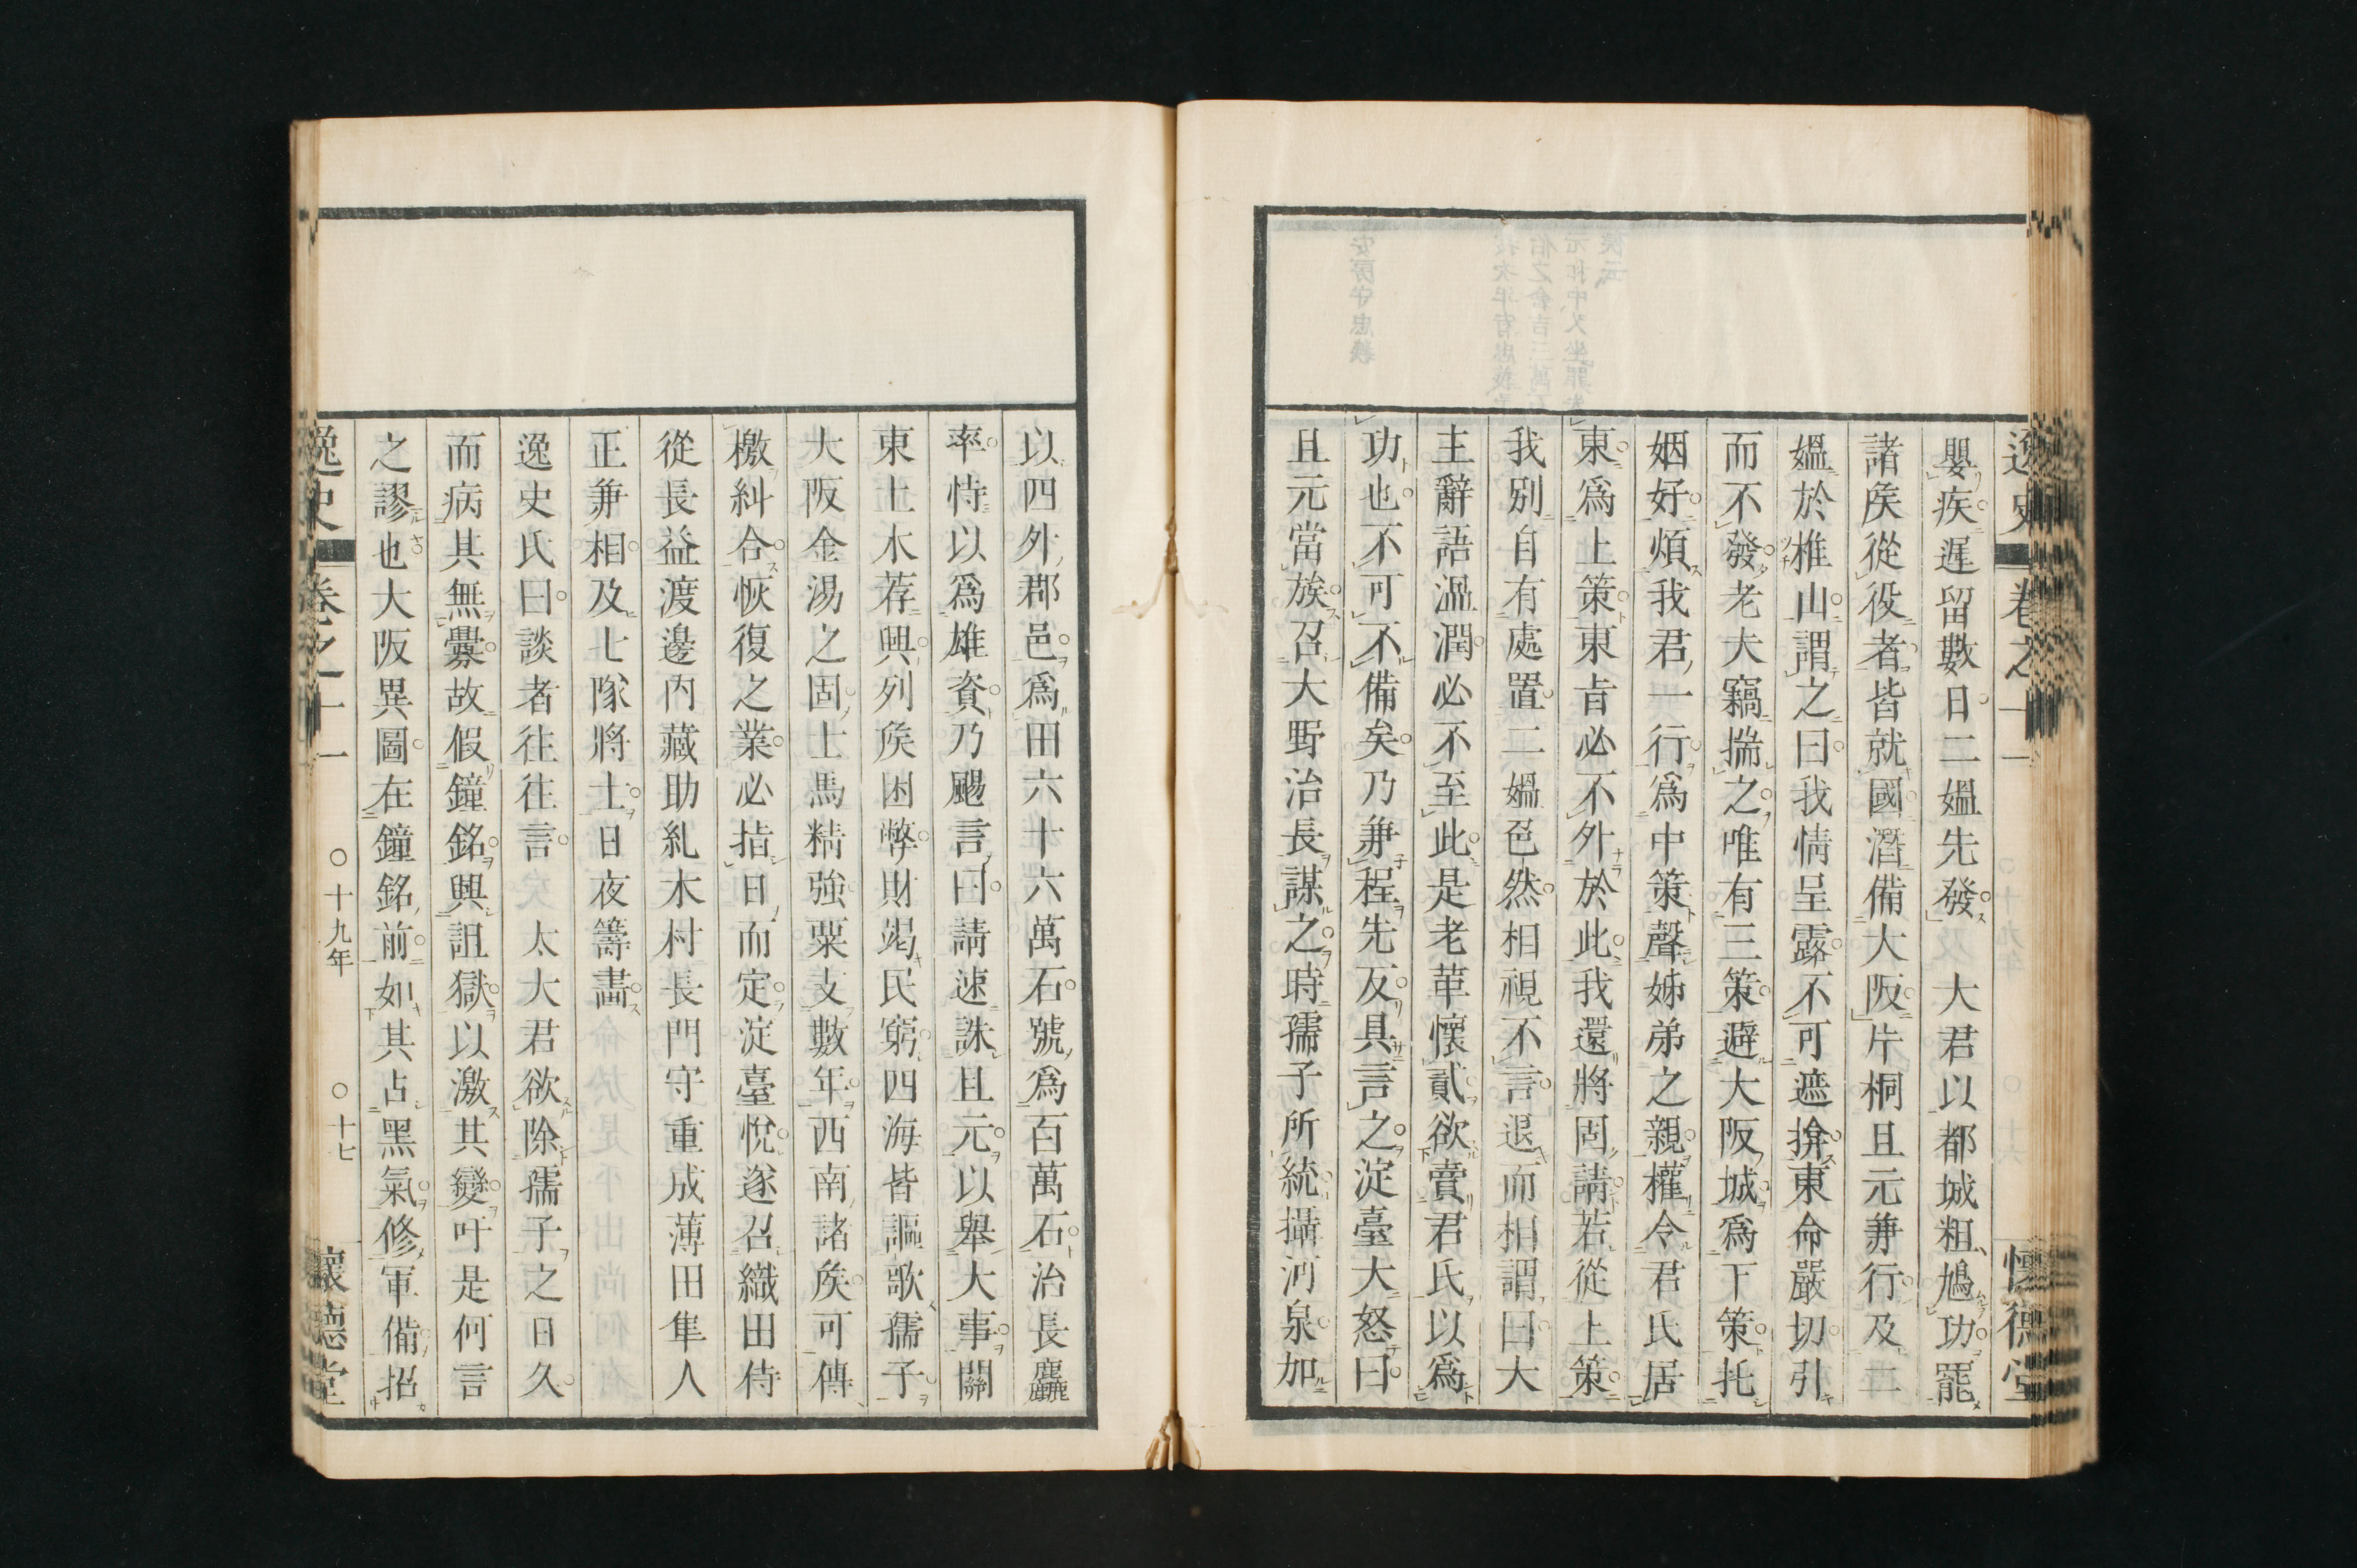 逸史 卷之十一 懷德堂
嬰疾遲留數日二媼先發 大君以都城粗鳩功罷
諸矦從役者皆就國潛備大阪片桐且元兼行及二
媼於椎山謂之曰我情呈露不可遮揜東命嚴切引
而不發老夫竊揣之唯有三策避大阪城爲下策托
姻好煩我君一行爲中策聲姊弟之親權令君氏居
東爲上策東旨必不外於此我還將固請若從上策
我別自有處置二媼色然相視不言退而相謂曰大
主辭語溫潤必不至此是老革懷貳欲賣君氏以爲
功也不可不備矣乃兼程先反具言之淀臺大怒曰
且元當族召大野治長謀之時孺子所統攝河泉加
以四外郡邑爲田六十六萬石號爲百萬石治長麤
率恃以爲雄資乃颺言曰請速誅且元以舉大事關
東土木荐興列矦困弊財竭民窮四海皆謳歌孺子
大阪金湯之固士馬精強粟支數年西南諸矦可傳
檄糾合恢復之業必指日而定淀臺悅遂召織田侍
從長益渡邊內藏助糺木村長門守重成薄田隼人
正兼相及七隊將士日夜籌畫
逸史氏曰談者往往言 太大君欲除孺子之日久
而病其無釁故假鐘銘興詛獄以激其變吁是何言
之謬也大阪異圖在鐘銘前如其占黑氣修軍備招
逸史 卷之十一 ○十九年 ○十七 懷德堂